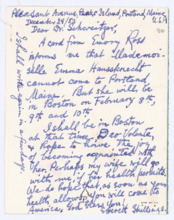 Peace and America, Peaks Island, Portland, Maine
U.S.A.
December 24/52
Dear Dr. Schweitzer,
A card from Emory Ross
says that "Mademoi-
selle Emma Haussknecht
cannot come to Portland
Maine. But she will be
in Boston on February 7th,
9th and 10th.
I shall be in Boston
at that time, Deo Volente,
& hope to have the joy
of becoming acquainted with
her. Perhaps my wife will go
with me, if her health permits.
We do hope that, as soon as your
health allows, you will come to
America. God bless you!
Everett
I shall write again in a package.